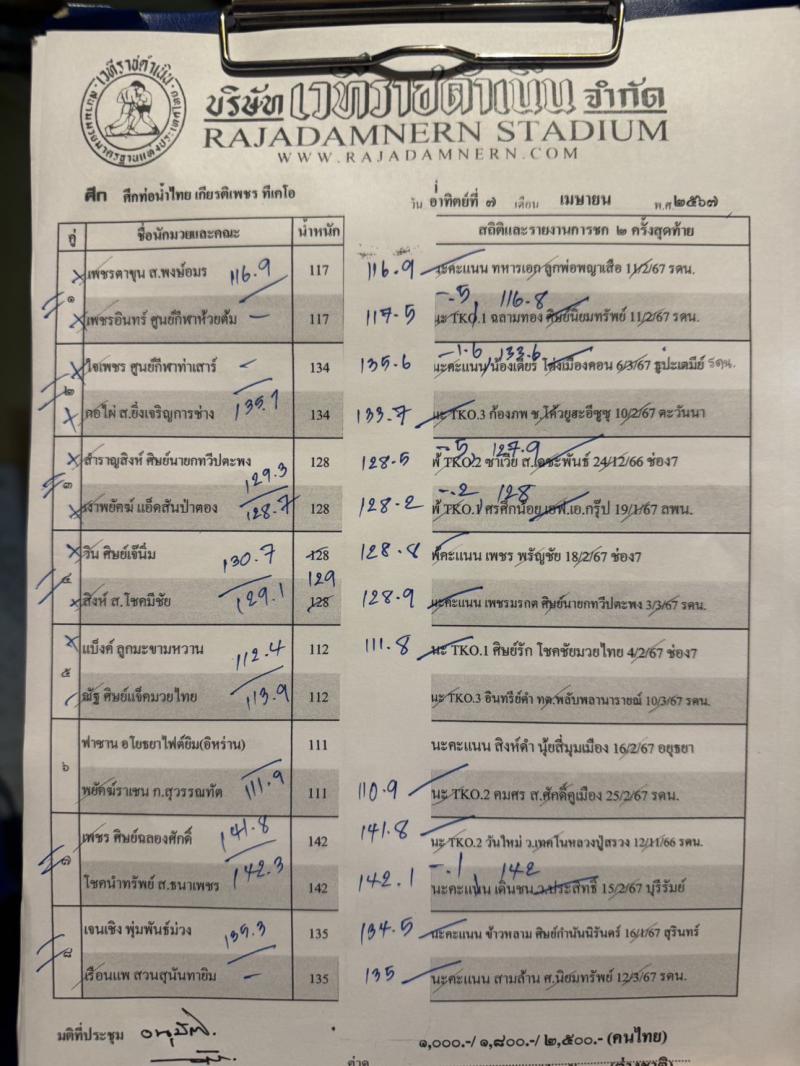 บริษัท เวทีราชดำเนิน จำกัด
RAJADAMNERN STADIUM
WWW.RAJADAMNERN.COM
ศึก ศึกท่อน้ำไทย เกียรติเพชร ทีเคโอ วัน อาทิตย์ที่ ๗ เดือน เมษายน พ.ศ ๒๕๖๗
คู่ ชื่อนักมวยและคณะ น้ำหนัก สถิติและรายงานการชก ๒ ครั้งสุดท้าย
เพชรตาขุน ส.พงษ์อมร 116.9 117 116.9 นะคะแนน ทหารเอก ลูกพ่อพญาเสือ 11/2/67 รดน.
๑ -.5 116.8
เพชรอินทร์ ศูนย์กีฬาห้วยต้ม – 117 117.5 นะ TKO.1 ฉลามทอง ศิษย์นิยมทรัพย์ 11/2/67 รดน.
-1.6 133.6
ใจเพชร ศูนย์กีฬาท่าเสาร์ – 134 135.6 นะคะแนน น้องเดียร์ โต่งเมืองคอน 6/3/67 ธูปะเตมีย์ รดน.
๒
คอไผ่ ส.ยิ่งเจริญการช่าง 135.1 134 133.7 นะ TKO.3 ก้องภพ ช.โค้วยูฮะอีซูซุ 10/2/67 ตะวันนา
-.5 127.9
สำราญสิงห์ ศิษย์นายกทวีปตะพง 129.3 128 128.5 พ้ TKO.2 ซาเวีย ส.เดชะพันธ์ 24/12/66 ช่อง7
๓ -.2 128
เงาพยัคฆ์ แอ็ดสันป่าตอง 128.7 128 128.2 พ้ TKO.1 ศรศึกน้อย เอฟ.เอ.กรุ๊ป 19/1/67 ลพน.
วิน ศิษย์เจ๊นิ่ม 130.7 128 128.8 พ้คะแนน เพชร พรัญชัย 18/2/67 ช่อง7
๔ 129
สิงห์ ส.โชคมีชัย 129.1 128 128.9 นะคะแนน เพชรมรกต ศิษย์นายกทวีปตะพง 3/3/67 รดน.
แบ็งค์ ลูกมะขามหวาน 112.4 112 111.8 นะ TKO.1 ศิษย์รัก โชคชัยมวยไทย 4/2/67 ช่อง7
๕
ณัฐ ศิษย์แจ็คมวยไทย 113.9 112 นะ TKO.3 อินทรีย์ดำ ทต.พลับพลานารายณ์ 10/3/67 รดน.
ฟาซาน อโยธยาไฟต์ยิม(อิหร่าน) 111 นะคะแนน สิงห์ดำ นุ้ยสี่มุมเมือง 16/2/67 อยุธยา
๖
พยัคฆ์ราเชน ก.สุวรรณทัต 111.9 111 110.9 นะ TKO.2 คมศร ส.ศักดิ์คูเมือง 25/2/67 รดน.
เพชร ศิษย์ฉลองศักดิ์ 141.8 142 141.8 นะ TKO.2 วันใหม่ ว.เทคโนหลวงปู่สรวง 12/11/66 รดน.
๗ -.1 142
โชคนำทรัพย์ ส.ธนาเพชร 142.3 142 142.1 นะคะแนน เดินชน ว.ประสิทธิ์ 15/2/67 บุรีรัมย์
เจนเชิง พุ่มพันธ์ม่วง 135.3 135 134.5 นะคะแนน ข้าวหลาม ศิษย์กำนันนิรันดร์ 16/1/67 สุรินทร์
๘
เรือนแพ สวนสุนันทายิม – 135 135 นะคะแนน สามล้าน ศ.นิยมทรัพย์ 12/3/67 รดน.
มติที่ประชุม อนุมัติ. ๑,๐๐๐.-/ ๑,๘๐๐.-/ ๒,๕๐๐.- (คนไทย)